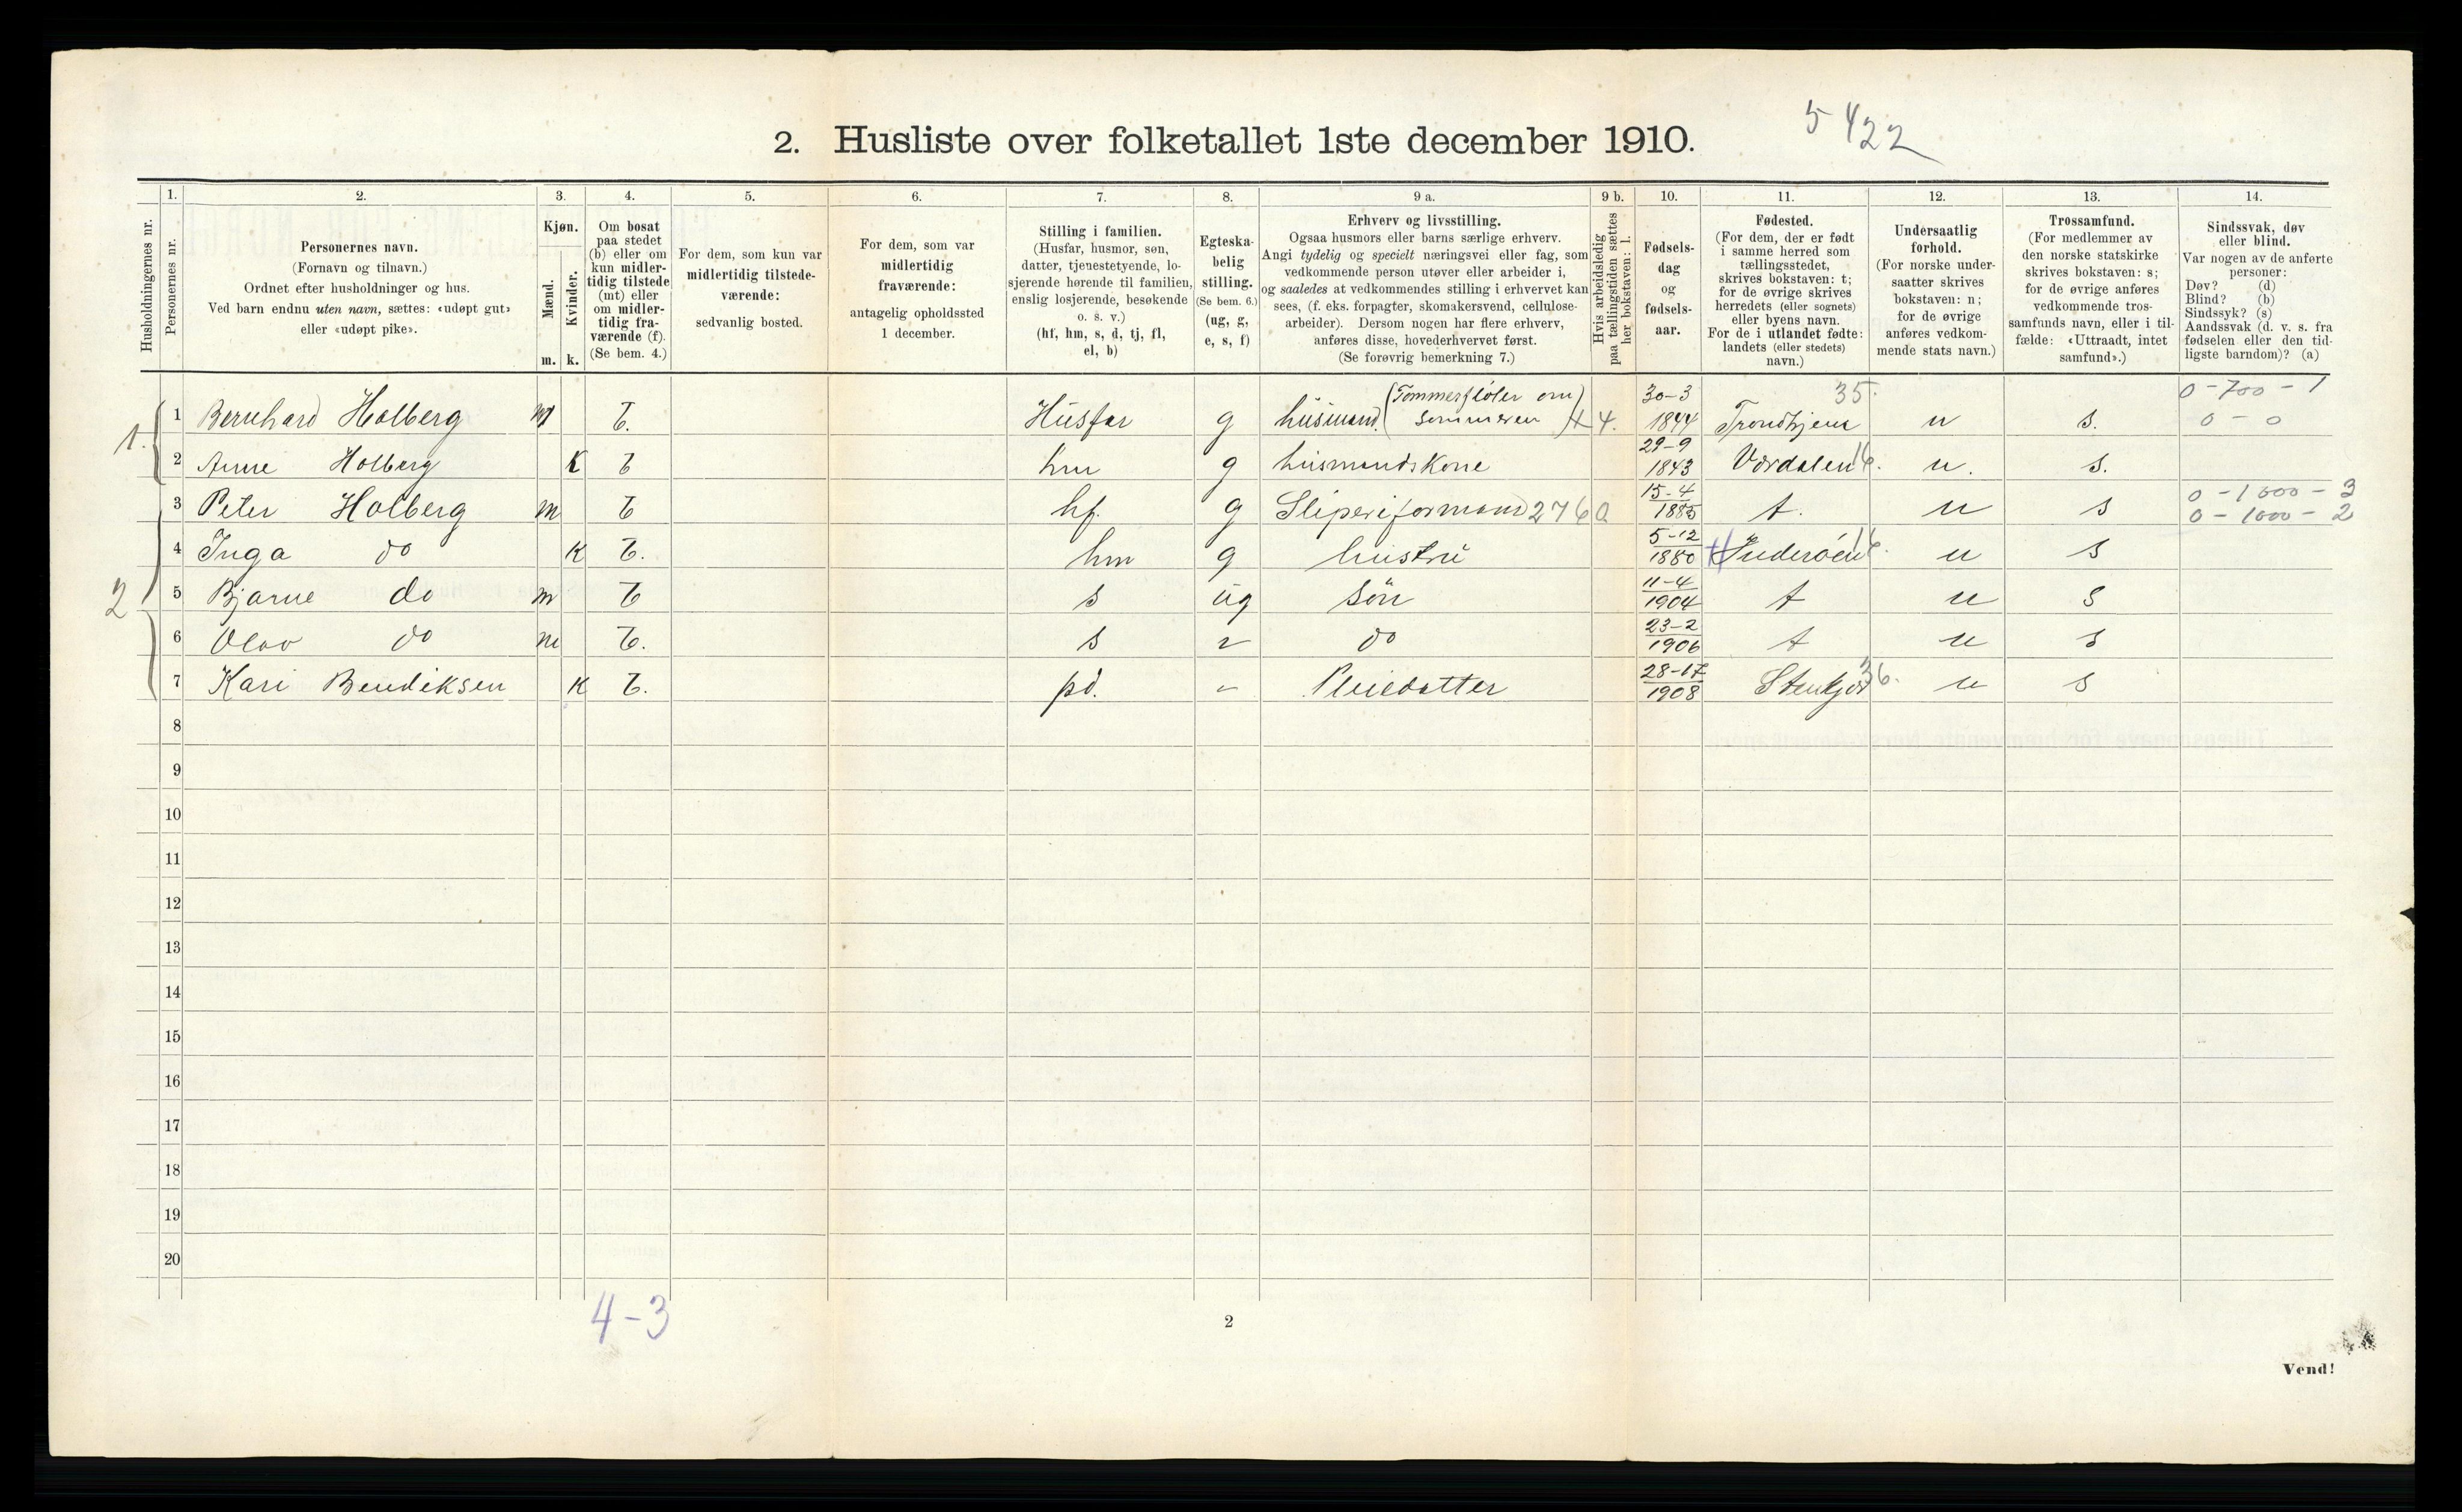 2. Husliste over folketallet 1ste december 1910.
5 422
Husholdningernes nr.
1.
Personernes nr.
2.
Personernes navn.
(Fornavn og tilnavn.)
Ordnet efter husholdninger og hus.
Ved barn endnu uten navn, sættes: «udøpt gut»
eller «udøpt pike».
3.
Kjøn.
Mænd.
m.
Kvinder.
k.
4.
Om bosat
paa stedet
(b) eller om
kun midler-
tidig tilstede
(mt) eller
om midler-
tidig fra-
værende (f).
(Se bem. 4.)
5.
For dem, som kun var
midlertidig tilstede-
værende:
sedvanlig bosted.
6.
For dem, som var
midlertidig
fraværende:
antagelig opholdssted
1 december.
7.
Stilling i familien.
(Husfar, husmor, søn,
datter, tjenestetyende, lo-
sjerende hørende til familien,
enslig losjerende, besøkende
o. s. v.)
(hf, hm, s, d, tj, fl,
el, b)
8.
Egteska-
belig
stilling.
(Se bem. 6.)
(ug, g,
e, s, f)
9 a.
Erhverv og livsstilling.
Ogsaa husmors eller barns særlige erhverv.
Angi tydelig og specielt næringsvei eller fag, som
vedkommende person utøver eller arbeider i,
og saaledes at vedkommendes stilling i erhvervet kan
sees, (f. eks. forpagter, skomakersvend, cellulose-
arbeider). Dersom nogen har flere erhverv,
anføres disse, hovederhvervet først.
(Se forøvrig bemerkning 7.)
9 b.
Hvis arbeidsledig
paa tællingstiden sættes
her bokstaven: l.
10.
Fødsels-
dag
og
fødsels-
aar.
11.
Fødested.
(For dem, der er født
i samme herred som
tællingsstedet,
skrives bokstaven: t;
for de øvrige skrives
herredets (eller sognets)
eller byens navn.
For de i utlandet fødte:
landets (eller stedets)
navn.)
12.
Undersaatlig
forhold.
(For norske under-
saatter skrives
bokstaven: n;
for de øvrige
anføres vedkom-
mende stats navn.)
13.
Trossamfund.
(For medlemmer av
den norske statskirke
skrives bokstaven: s;
for de øvrige anføres
vedkommende tros-
samfunds navn, eller i til-
fælde: «Uttraadt, intet
samfund».)
14.
Sindssvak, døv
eller blind.
Var nogen av de anførte
personer:
Døv? (d)
Blind? (b)
Sindssyk? (s)
Aandssvak (d. v. s. fra
fødselen eller den tid-
ligste barndom)? (a)
1. 1 Bernhard Holberg m b. Husfar g husmand. (Tømmerfløter om sommeren) 4. 30-3 1844 Trondhjem 35. n s. 0-700-1
0-0
2 Anne Holberg k b hm g husmandskone 29-9 1843 Værdalen n. s.
2 3 Peter Holberg m b hf. g Sliperiformand 2760 15-4 1885 t. n s 0-1000-3
0-1000-2
4 Inga do k b. hm g hustru 5-12 1880 Inderøen n s
5 Bjarne do m b s ug søn 11-4 1904 t n s
6 Olav do m b. s " do 23-2 1906 t n s
7 Kari Bendiksen k b. pd. " Pleiedatter 28-12 1908 Stenkjær 36. n s
8
9
10
11
12
13
14
15
16
17
18
19
20
4-3
2
Vend!